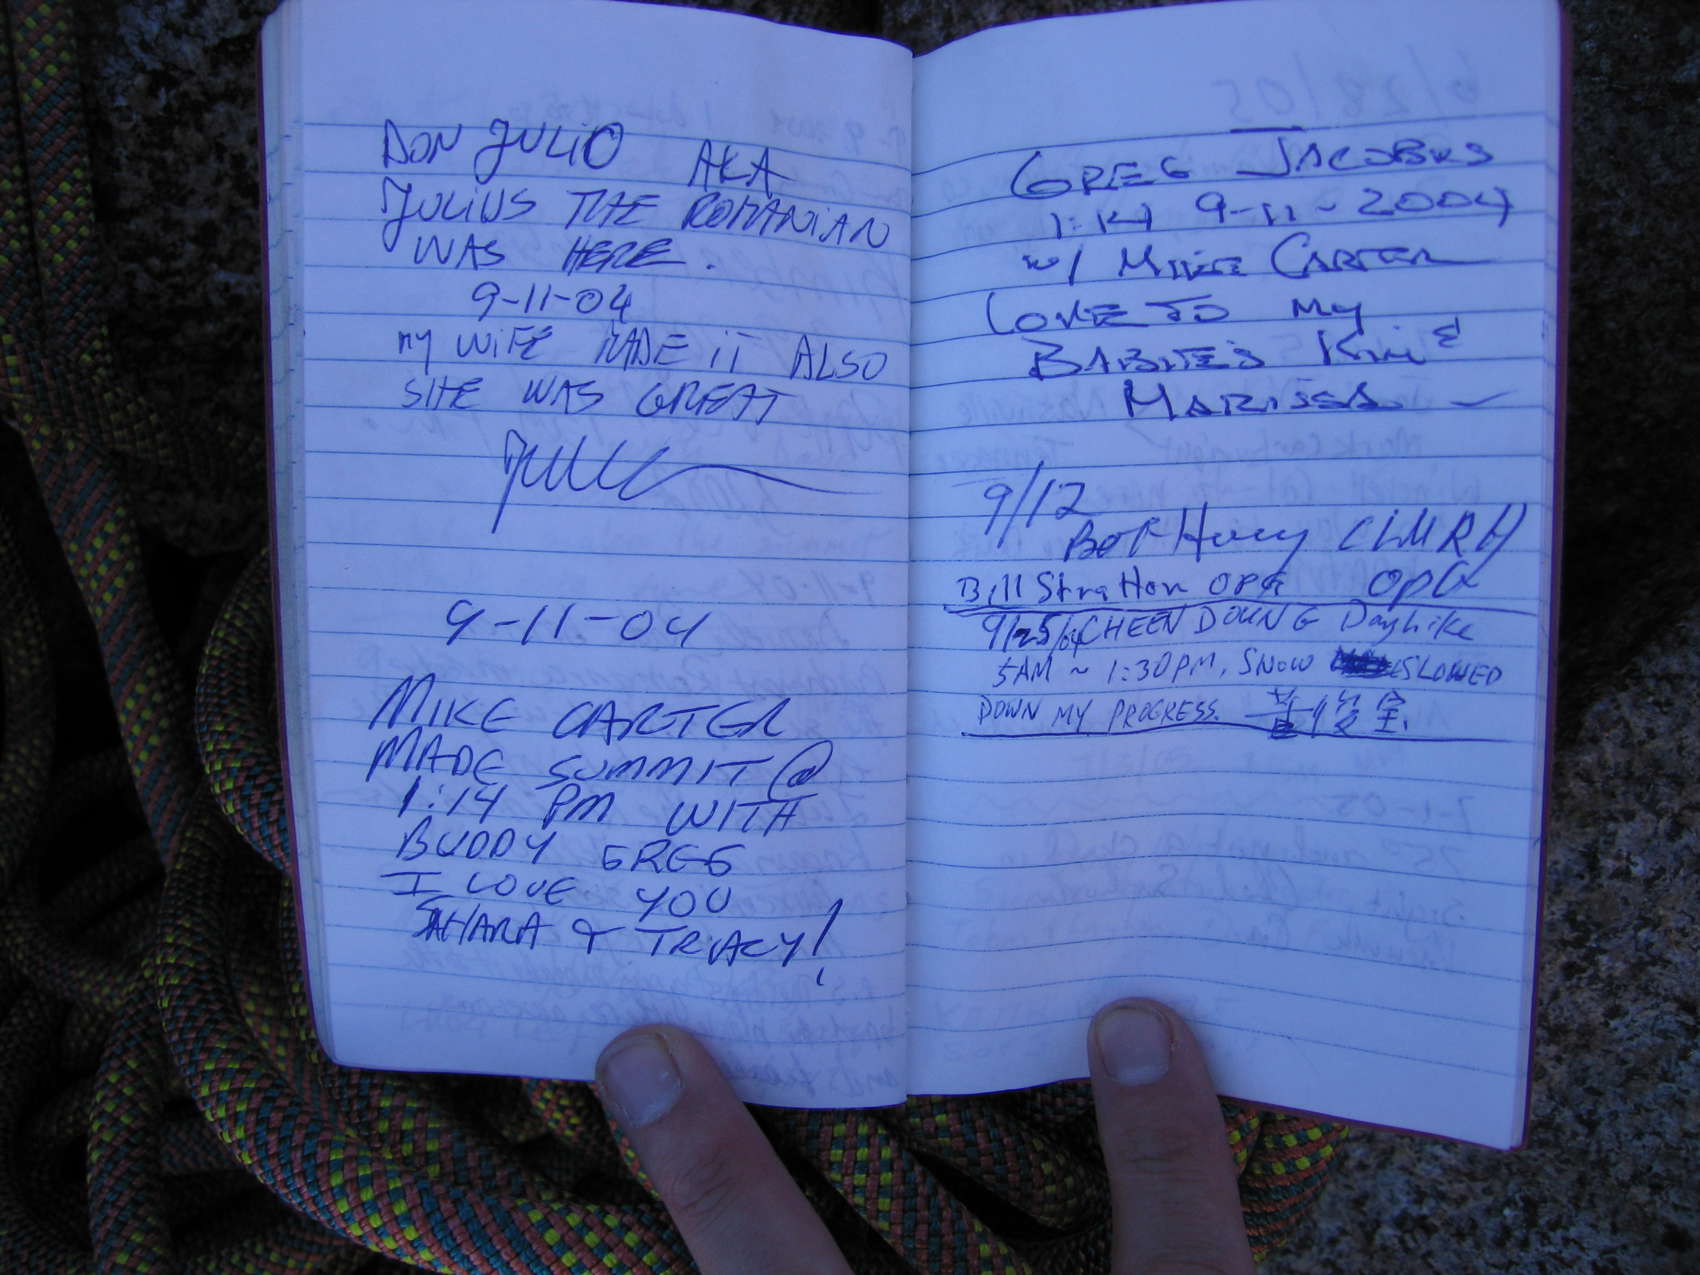 DON JULIO AKA
JULIUS THE ROMANIAN
WAS HERE.
9-11-04
MY WIFE MADE IT ALSO
SHE WAS GREAT
9-11-04
MIKE CARTER
MADE SUMMIT @
1:14 PM WITH
BUDDY GREG
I LOVE YOU
SAHARA & TRACY!
GREG JACOBUS
1:14 9-11-2004
w/ MIKE CARTER
LOVE TO MY
BABIES KIM &
MARISSA
9/12
CLMRH
Bill Stratton OPG OPG
9/25/04 CHEEN DOUNG Dayhike
5AM ~ 1:30PM, SNOW SLOWED
DOWN MY PROGRESS.